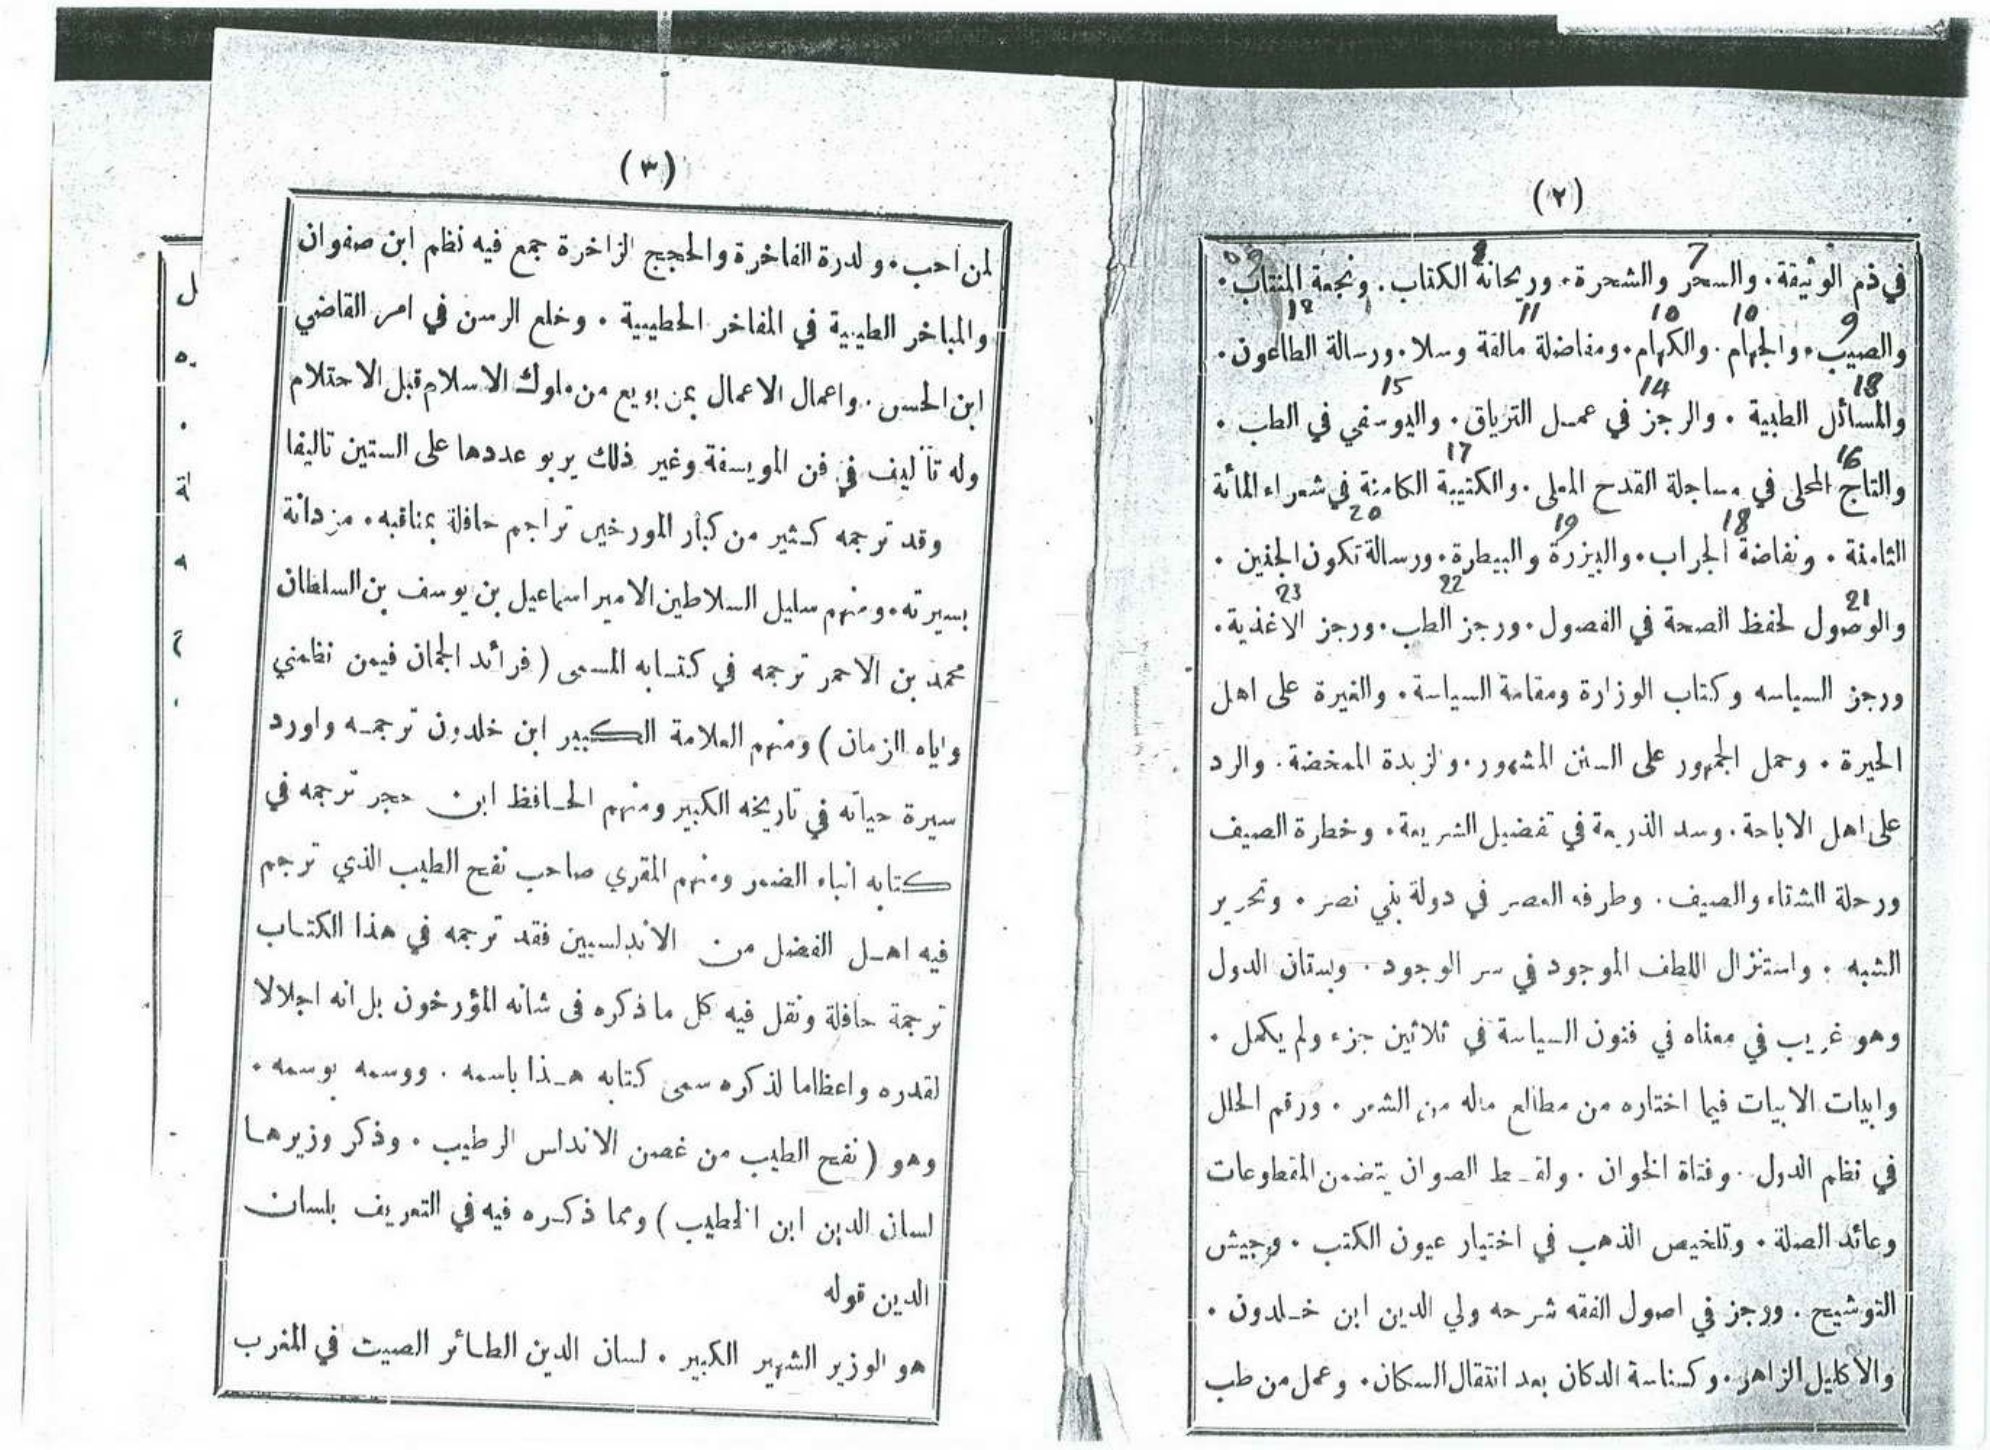 (٢)
في ذم الوثيقة. والسحر والشحرة. وريحانة الكتاب. ونجعة المنتاب.
7 8
والصيب. والجهام. والكهام. ومفاضلة مالقة وسلا. ورسالة الطاعون.
9 10 10 11 12
والمسائل الطبية. والرجز في عمل الترياق. واليوسفي في الطب.
13 14 15
والتاج المحلى في مساجلة القدح المعلى. والكتيبة الكامنة في شعراء المائة
16 17
الثامنة. ونفاضة الجراب. والبيزرة والبيطرة. ورسالة تكون الجنين.
18 19 20
والوصول لحفظ الصحة في الفصول. ورجز الطب. ورجز الاغذية.
21 22 23
ورجز السياسه وكتاب الوزارة ومقامة السياسة. والغيرة على اهل
الحيرة. وحمل الجمهور على السنن المشهور. والزبدة الممخضة. والرد
على اهل الاباحة. وسد الذريعة في تفضيل الشريعة. وخطرة الصيف
ورحلة الشتاء والصيف. وطرفه العصر في دولة بني نصر. وتحرير
الشبه. واستنزال اللطف الموجود في سر الوجود. وبستان الدول
وهو غريب في معناه في فنون السياسة في ثلاثين جزء ولم يكمل.
وابيات الابيات فيما اختاره من مطالع ماله من الشعر. ورقم الحلل
في نظم الدول. وفتاة الخوان. ولقط الصوان يتضمن المقطوعات
وعائد الصلة. وتلخيص الذهب في اختيار عيون الكتب. وجيش
التوشيح. ورجز في اصول الفقه شرحه ولي الدين ابن خلدون.
والاكليل الزاهر. وكناسة الدكان بعد انتقال السكان. وعمل من طب
(٣)
لمن احب. ولدرة الفاخرة والحجج الزاخرة جمع فيه نظم ابن صفوان
والمباخر الطيبية في المفاخر الخطيبية. وخلع الرسن في امر القاضي
ابن الحسن. واعمال الاعمال بمن بويع من ملوك الاسلام قبل الاحتلام
وله تآليف في فن المويسقة وغير ذلك يربو عددها على الستين تاليفا
وقد ترجمه كثير من كبار المورخين تراجم حافلة بمناقبه. مزدانة
بسيرته. ومنهم سليل السلاطين الامير اسماعيل بن يوسف بن السلطان
محمد بن الاحمر ترجمه في كتابه المسمى (فرائد الجمان فيمن نظمني
واياه الزمان) ومنهم العلامة الكبير ابن خلدون ترجمه واورد
سيرة حياته في تاريخه الكبير ومنهم الحافظ ابن حجر ترجمه في
كتابه انباء الغمر ومنهم المقري صاحب نفح الطيب الذي ترجم
فيه اهل الفضل من الاندلسيين فقد ترجمه في هذا الكتاب
ترجمة حافلة ونقل فيه كل ما ذكره فى شانه المؤرخون بل انه اجلالا
لقدره واعظاما لذكره سمى كتابه هذا باسمه. ووسمه بوسمه.
وهو (نفح الطيب من غصن الاندلس الرطيب. وذكر وزيرها
لسان الدين ابن الخطيب) ومما ذكره فيه في التعريف بلسان
الدين قوله
هو الوزير الشهير الكبير. لسان الدين الطائر الصيت في المغرب